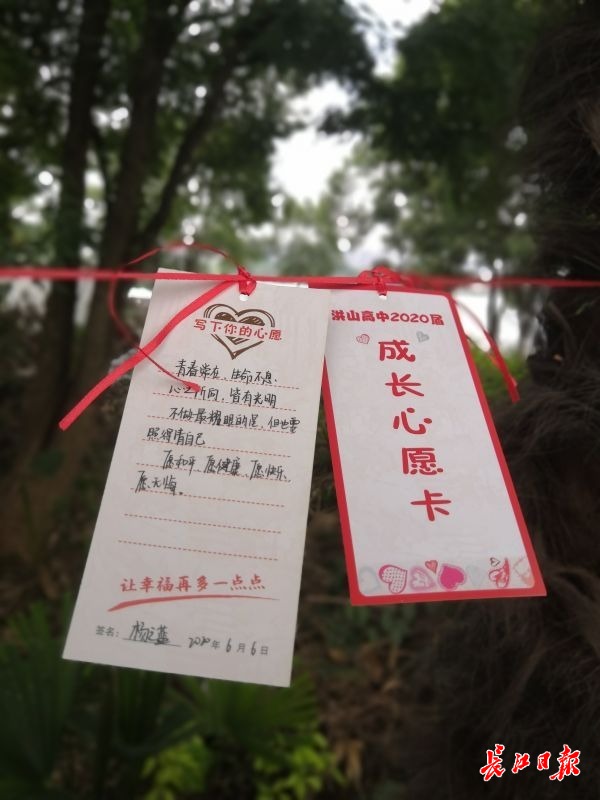 写下你的心愿
青春常在、生命不息、
心之所向，皆有光明
不做最耀眼的星，但也要
照得清自己
愿和平、愿健康、愿快乐、
愿无悔。
让幸福再多一点点
签名：杨之蓝 2020年6月6日
洪山高中2020届
成长心愿卡
长江日报